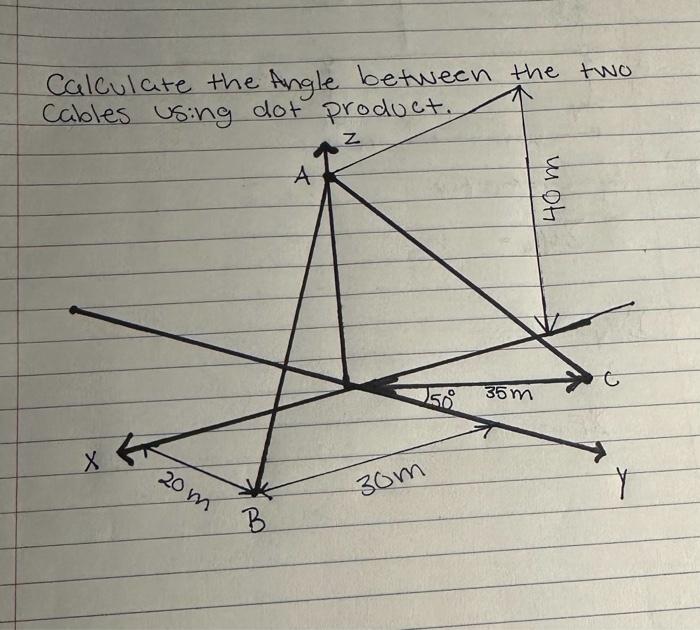 Calculate the Angle between the two
Cables using dot product.
Z
A
40m
C
50°
35m
X
20m
30m
Y
B